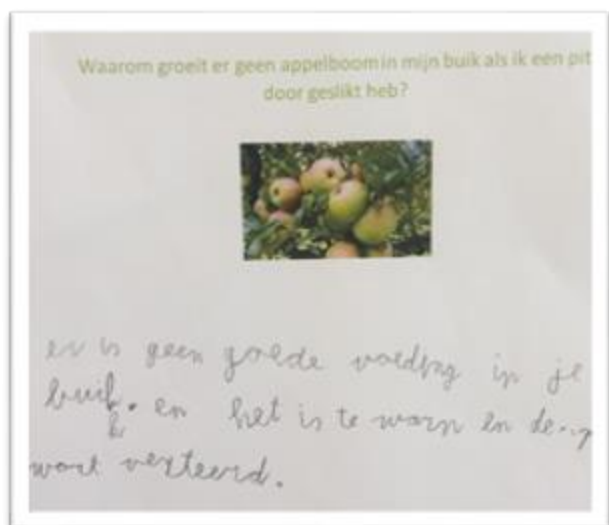 Waarom groeit er geen appelboom in mijn buik als ik een pit
door geslikt heb?
er is geen goede voeding in je
buik. en het is te warm en
k
wort verteerd.